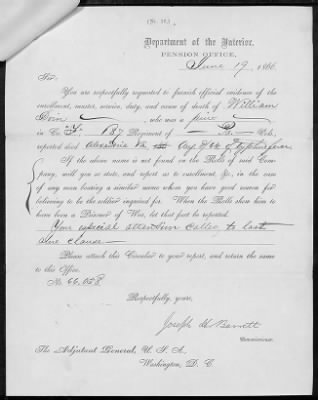 (No. 11.)
Department of the Interior,
PENSION OFFICE,
June 19, 1866
Sir:
You are respectfully requested to furnish official evidence of the
enrollment, muster, service, duty, and cause of death of William
who was a
in Co. F. 187 Regiment of P. Vols.
reported died Alexandria Va Aug 5th 64 of Typhoid fever
If the above name is not found on the Rolls of said Com-
pany, will you so state, and report as to enrollment, &c., in the case
of any man bearing a similar name whom you have good reason for
believing to be the soldier inquired for. When the Rolls show him to
have been a Prisoner of War, let that fact be reported.
Your especial attention called to last
clause
Please attach this Circular to your report, and return the same
to this Office.
No. 66.058
Respectfully, yours,
Joseph H Barrett
Commissioner.
The Adjutant General, U. S. A.,
Washington, D. C.